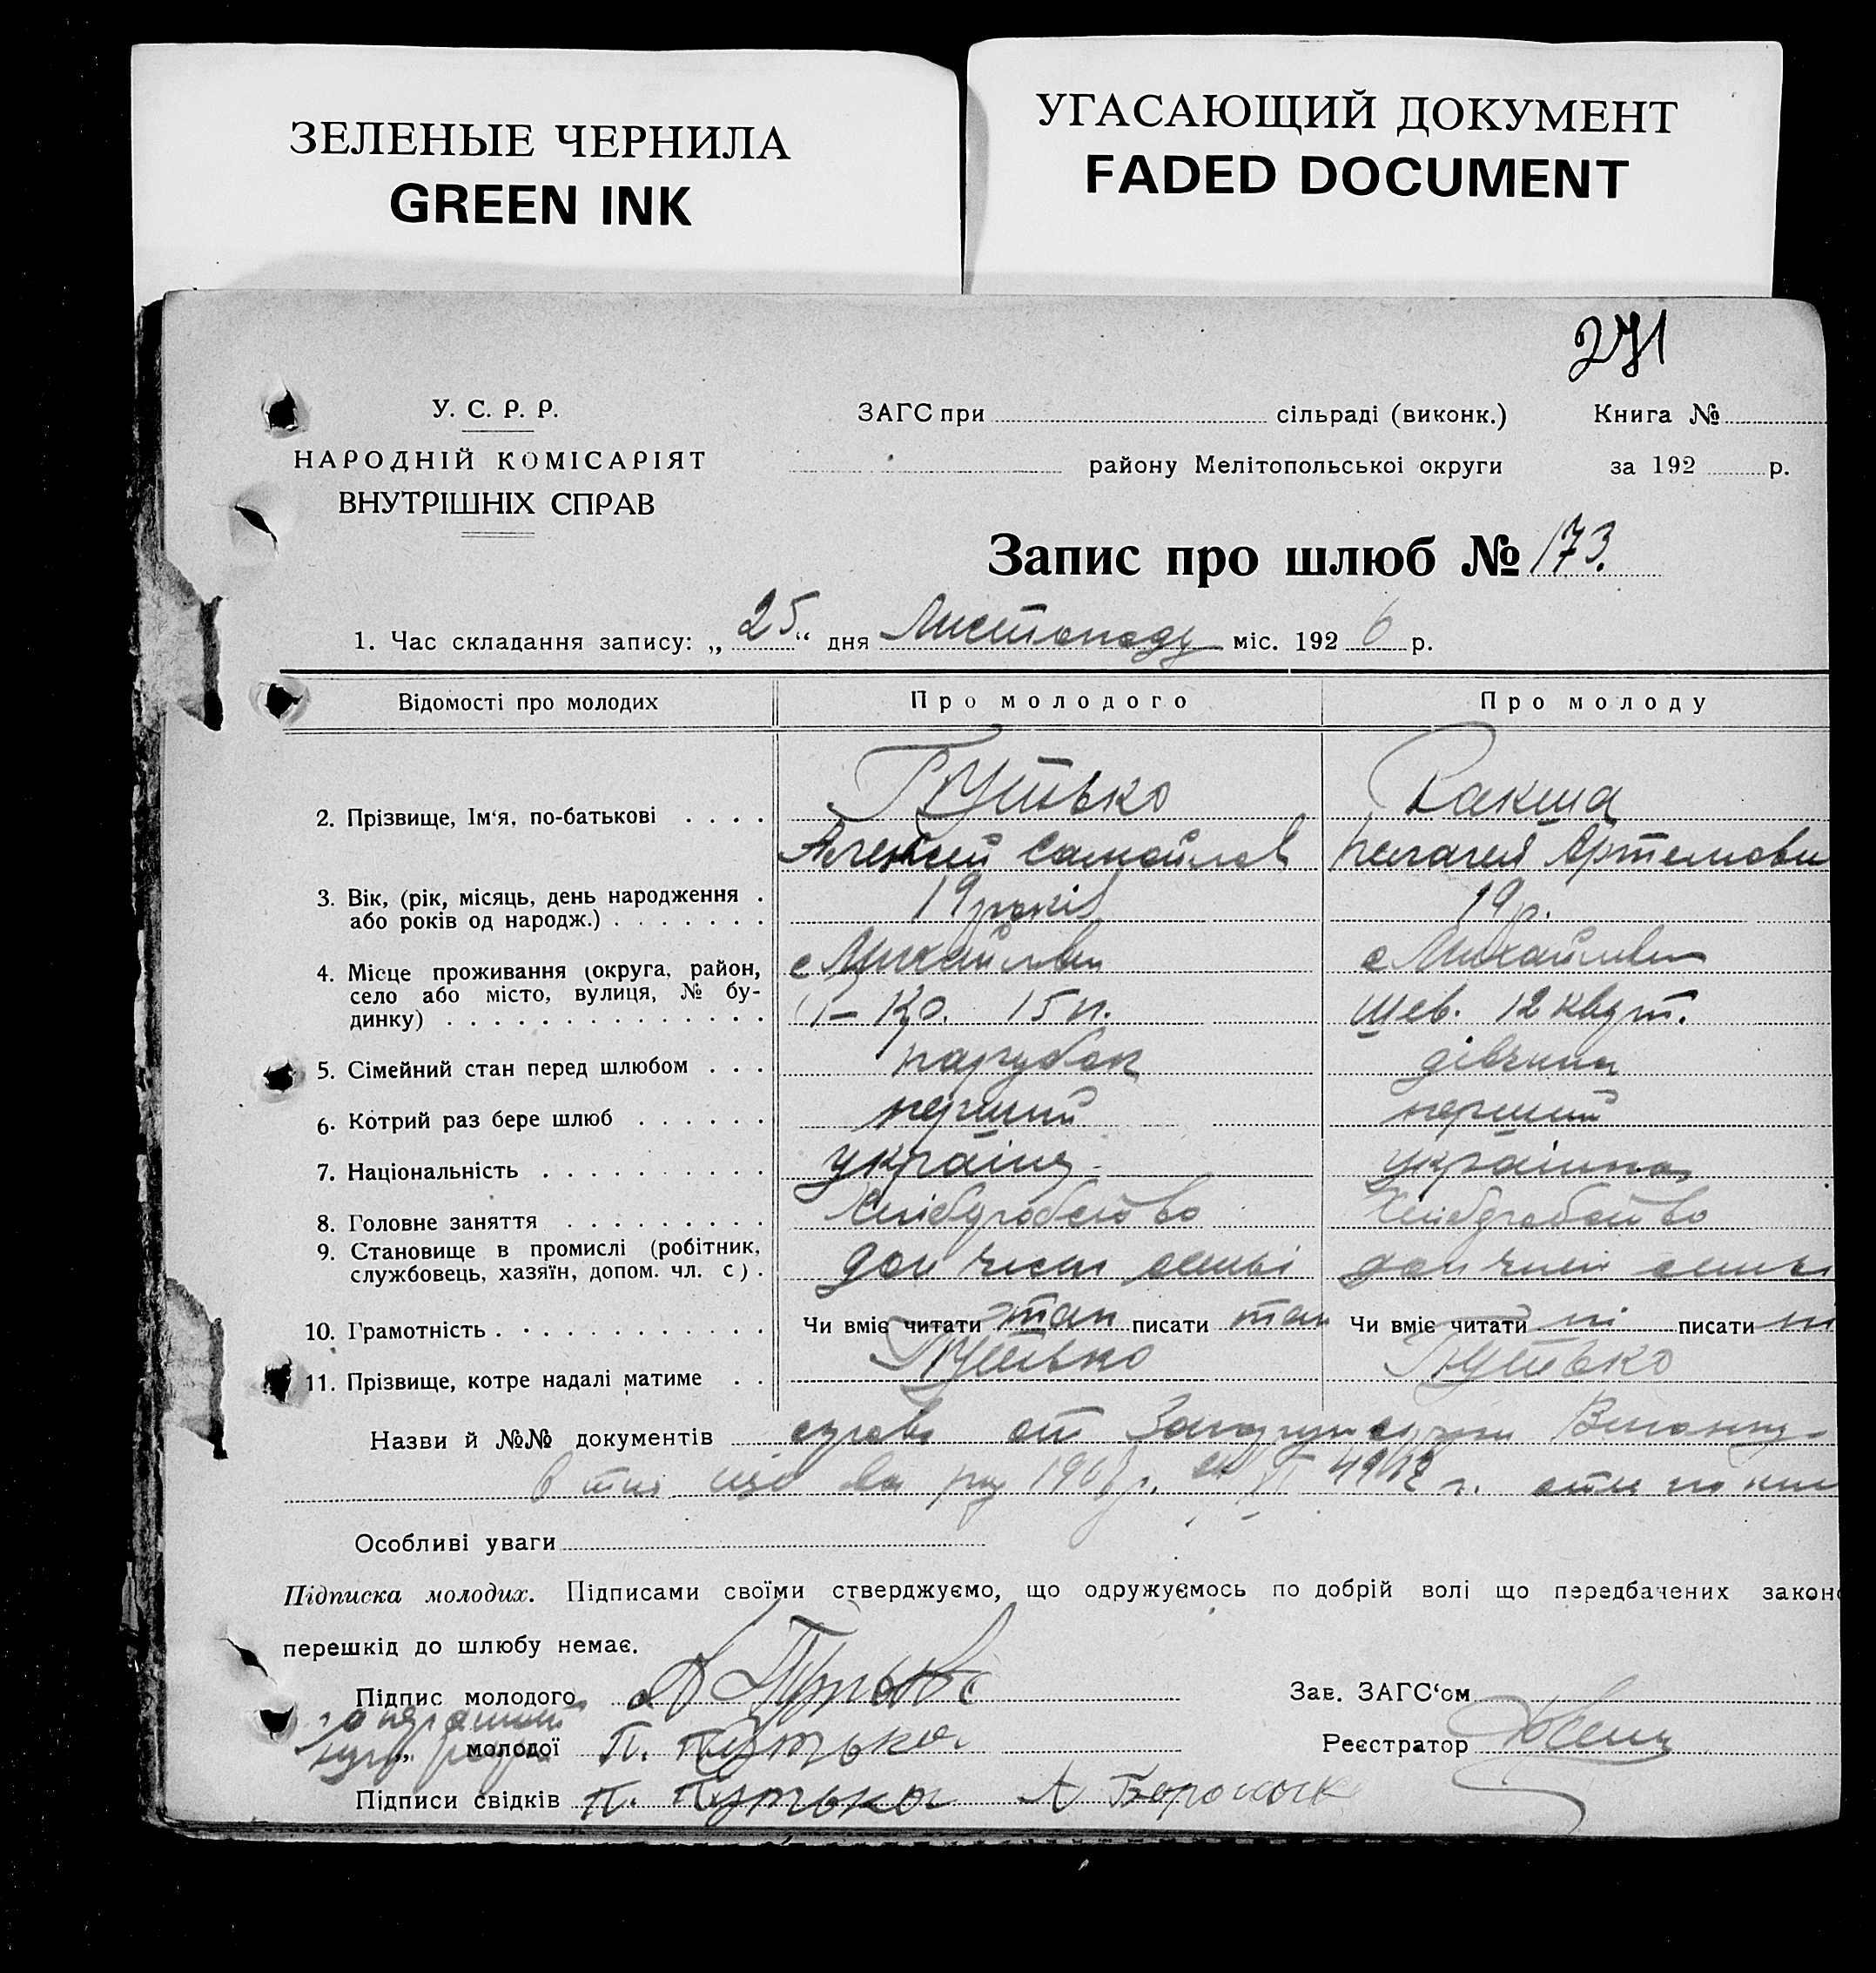 ЗЕЛЕНЫЕ ЧЕРНИЛА
GREEN INK
УГАСАЮЩИЙ ДОКУМЕНТ
FADED DOCUMENT
271
У. С. Р. Р.
НАРОДНІЙ КОМІСАРІЯТ
ВНУТРІШНІХ СПРАВ
ЗАГС при сільраді (виконк.) Книга №
району Мелітопольської округи за 192 р.
Запис про шлюб № 173.
1. Час складання запису: „25“ дня Листопаду міс. 1926 р.
Відомості про молодих Про молодого Про молоду
2. Прізвище, Ім'я, по-батькові Путько Ракша
Алексей Самойлов Пелагея Артемовн
3. Вік, (рік, місяць, день народження
або років од народж.) 19 років 19 р.
4. Місце проживання (округа, район, с Михайлівка с Михайлівка
село або місто, вулиця, № бу-
динку) 15 п. Шев. 12 кварт.
5. Сімейний стан перед шлюбом парубок дівчина
6. Котрий раз бере шлюб перший перший
7. Національність українц українка
8. Головне заняття Хлібдробство Хлібдробство
9. Становище в промислі (робітник,
службовець, хазяїн, допом. чл. с). доп член семьі доп член семьі
10. Грамотність Чи вміє читати так писати так Чи вміє читати ні писати ні
11. Прізвище, котре надалі матиме Путько Путько
Назви й №№ документів
в тім що
Особливі уваги
Підписка молодих. Підписами своїми стверджуємо, що одружуємось по добрій волі що передбачених законо
перешкід до шлюбу немає.
Підпис молодого А Путько Зав. ЗАГС'ом
„ молодої П. Путька Реєстратор
Підписи свідків П. Путька А